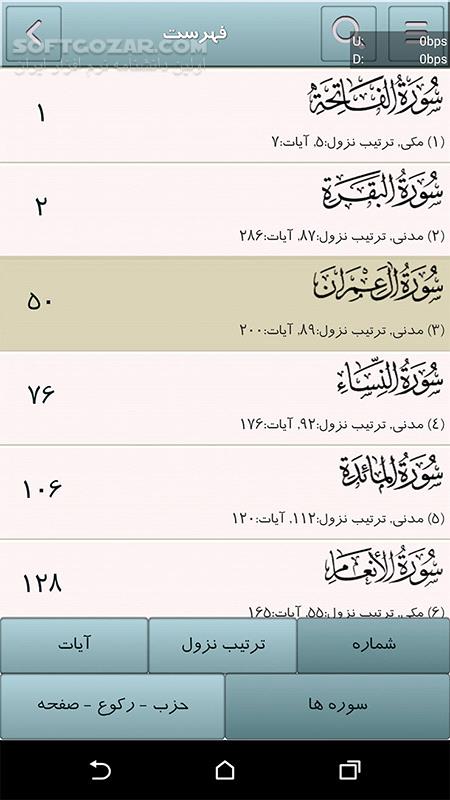 فهرست
U: 0bps
D: 0bps
SOFTGOZAR.COM
اولین دانشنامه نرم افزار ایران
سُورَةُ الفَاتِحَةِ
۱
(۱) مکی, ترتیب نزول:۵, آیات:۷
سُورَةُ البَقَرَةِ
۲
(۲) مدنی, ترتیب نزول:۸۷, آیات:۲۸۶
سُورَةُ آلِ عِمْرَانَ
۵۰
(۳) مدنی, ترتیب نزول:۸۹, آیات:۲۰۰
سُورَةُ النِّسَاءِ
۷۶
(٤) مدنی, ترتیب نزول:۹۲, آیات:۱۷۶
سُورَةُ المَائِدَةِ
۱۰۶
(۵) مدنی, ترتیب نزول:۱۱۲, آیات:۱۲۰
سُورَةُ الأَنْعَامِ
۱۲۸
(۶) مکی, ترتیب نزول:۵۵, آیات:۱۶۵
شماره
ترتیب نزول
آیات
سوره ها
حزب - رکوع - صفحه